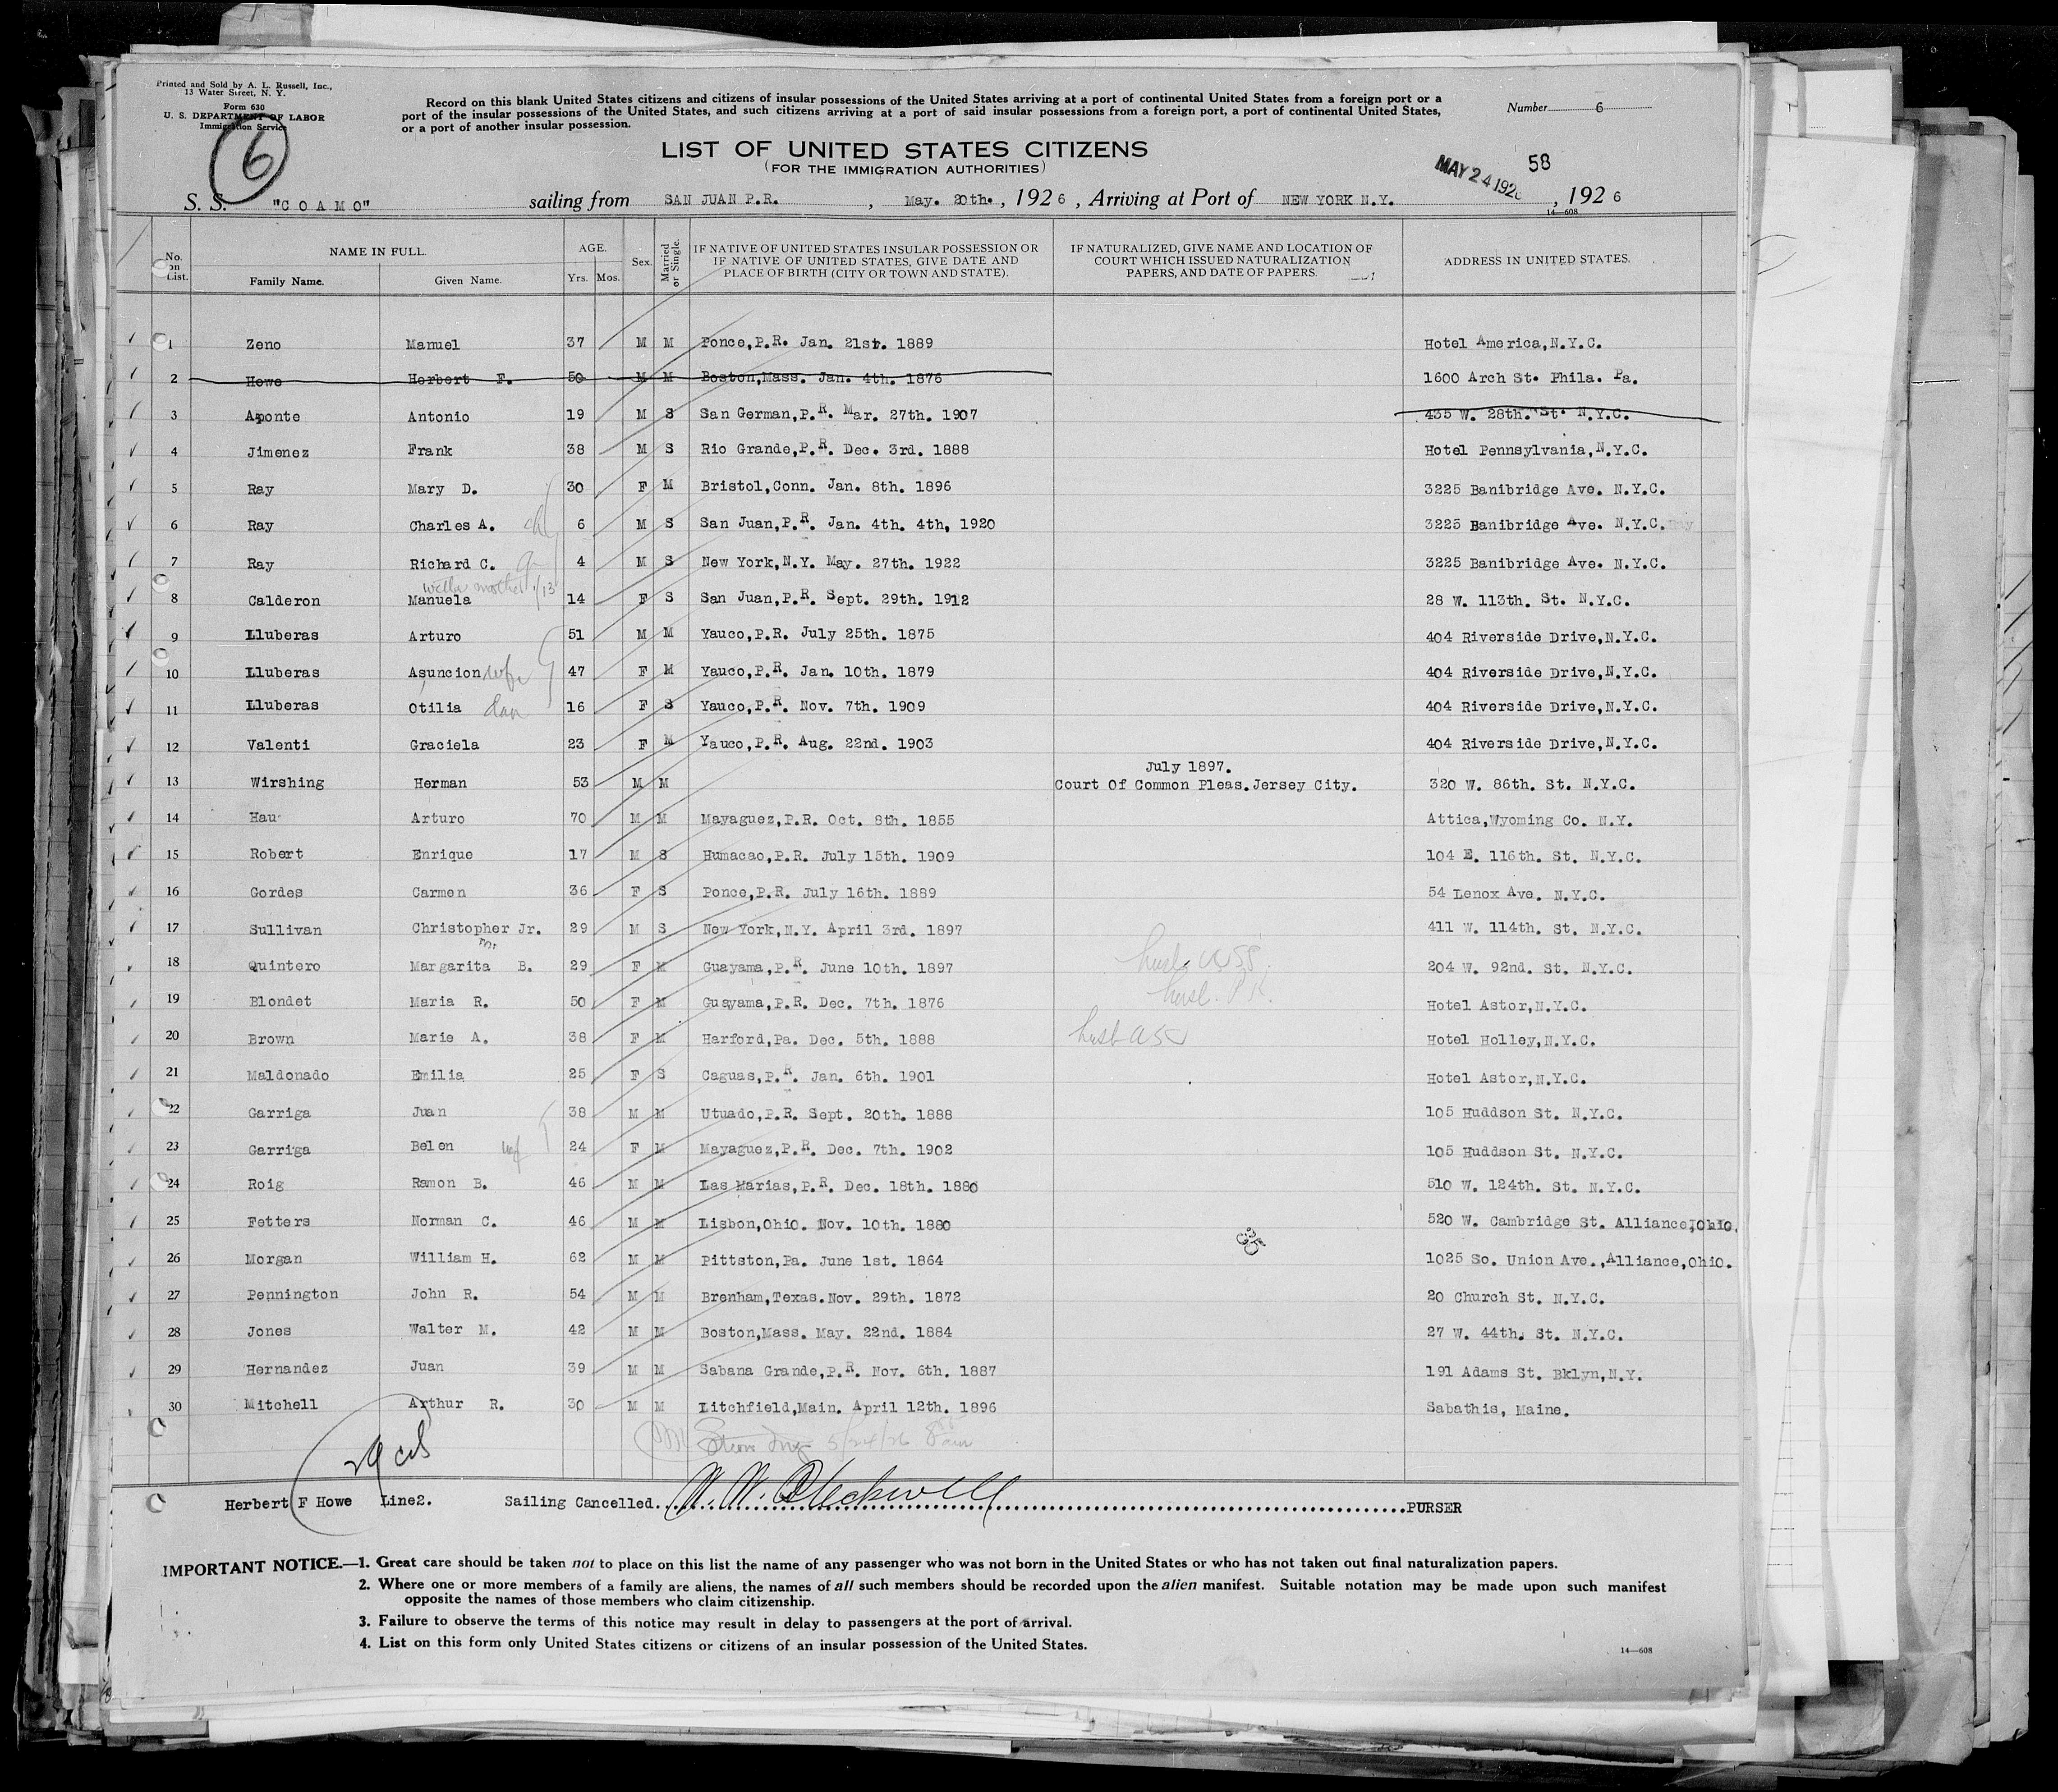 Printed and Sold by A. L. Russell, Inc.,
13 Water Street, N. Y.
Form 630
U. S. DEPARTMENT OF LABOR
Immigration Service
6
Record on this blank United States citizens and citizens of insular possessions of the United States arriving at a port of continental United States from a foreign port or a
port of the insular possessions of the United States, and such citizens arriving at a port of said insular possessions from a foreign port, a port of continental United States,
or a port of another insular possession.
Number 6
LIST OF UNITED STATES CITIZENS
(FOR THE IMMIGRATION AUTHORITIES)
58
MAY 24 192
S. S. "COAMO" sailing from SAN JUAN P.R. , May. 20th. , 1926 , Arriving at Port of NEW YORK N.Y. , 1926
14—608
No. on List. NAME IN FULL. Family Name. Given Name. AGE. Yrs. Mos. Sex. Married or Single. IF NATIVE OF UNITED STATES INSULAR POSSESSION OR IF NATIVE OF UNITED STATES, GIVE DATE AND PLACE OF BIRTH (CITY OR TOWN AND STATE). IF NATURALIZED, GIVE NAME AND LOCATION OF COURT WHICH ISSUED NATURALIZATION PAPERS, AND DATE OF PAPERS. ADDRESS IN UNITED STATES.
1 Zeno Manuel 37 M M Ponce,P.R. Jan. 21st. 1889 Hotel America,N.Y.C.
2 Howe Herbert F. 50 M M Boston,Mass. Jan. 4th. 1876 1600 Arch St. Phila. Pa.
3 Aponte Antonio 19 M S San German,P.R. Mar. 27th. 1907 435 W. 28th. St. N.Y.C.
4 Jimenez Frank 38 M S Rio Grande,P.R. Dec. 3rd. 1888 Hotel Pennsylvania,N.Y.C.
5 Ray Mary D. 30 F M Bristol,Conn. Jan. 8th. 1896 3225 Banibridge Ave. N.Y.C.
6 Ray Charles A. ch 6 M S San Juan,P.R. Jan. 4th. 4th, 1920 3225 Banibridge Ave. N.Y.C.
7 Ray Richard C. 4 M S New York,N.Y. May. 27th. 1922 3225 Banibridge Ave. N.Y.C.
mother 1/13
8 Calderon Manuela 14 F S San Juan,P.R. Sept. 29th. 1912 28 W. 113th. St. N.Y.C.
9 Lluberas Arturo 51 M M Yauco,P.R. July 25th. 1875 404 Riverside Drive,N.Y.C.
10 Lluberas Asuncion wfe 47 F M Yauco,P.R. Jan. 10th. 1879 404 Riverside Drive,N.Y.C.
11 Lluberas Otilia dau 16 F S Yauco,P.R. Nov. 7th. 1909 404 Riverside Drive,N.Y.C.
12 Valenti Graciela 23 F M Yauco,P.R. Aug. 22nd. 1903 404 Riverside Drive,N.Y.C.
July 1897.
13 Wirshing Herman 53 M M Court Of Common Pleas.Jersey City. 320 W. 86th. St. N.Y.C.
14 Hau Arturo 70 M M Mayaguez,P.R. Oct. 8th. 1855 Attica,Wyoming Co. N.Y.
15 Robert Enrique 17 M S Humacao,P.R. July 15th. 1909 104 E. 116th. St. N.Y.C.
16 Gordes Carmen 36 F S Ponce,P.R. July 16th. 1889 54 Lenox Ave. N.Y.C.
17 Sullivan Christopher Jr. 29 M S New York,N.Y. April 3rd. 1897 411 W. 114th. St. N.Y.C.
18 Quintero Margarita B. 29 F M Guayama,P.R. June 10th. 1897 husb. 204 W. 92nd. St. N.Y.C.
19 Blondet Maria R. 50 F M Guayama,P.R. Dec. 7th. 1876 husb. P.R. Hotel Astor,N.Y.C.
20 Brown Marie A. 38 F M Harford,Pa. Dec. 5th. 1888 husb Hotel Holley,N.Y.C.
21 Maldonado Emilia 25 F S Caguas,P.R. Jan. 6th. 1901 Hotel Astor,N.Y.C.
22 Garriga Juan 38 M M Utuado,P.R. Sept. 20th. 1888 105 Huddson St. N.Y.C.
23 Garriga Belen wf 24 F M Mayaguez,P.R. Dec. 7th. 1902 105 Huddson St. N.Y.C.
24 Roig Ramon B. 46 M M Las Marias,P.R. Dec. 18th. 1880 510 W. 124th. St. N.Y.C.
25 Fetters Norman C. 46 M M Lisbon,Ohio. Nov. 10th. 1880 520 W. Cambridge St. Alliance,Ohio.
35
26 Morgan William H. 62 M M Pittston,Pa. June 1st. 1864 1025 So. Union Ave.,Alliance,Ohio.
27 Pennington John R. 54 M M Brenham,Texas.Nov. 29th. 1872 20 Church St. N.Y.C.
28 Jones Walter M. 42 M M Boston,Mass. May. 22nd. 1884 27 W. 44th. St. N.Y.C.
29 Hernandez Juan 39 M M Sabana Grande,P.R. Nov. 6th. 1887 191 Adams St. Bklyn,N.Y.
30 Mitchell Arthur R. 30 M M Litchfield,Main. April 12th. 1896 Sabathis, Maine.
5/24/26 8
29
Herbert F Howe Line2. Sailing Cancelled. PURSER
IMPORTANT NOTICE.—1. Great care should be taken not to place on this list the name of any passenger who was not born in the United States or who has not taken out final naturalization papers.
2. Where one or more members of a family are aliens, the names of all such members should be recorded upon the alien manifest. Suitable notation may be made upon such manifest
opposite the names of those members who claim citizenship.
3. Failure to observe the terms of this notice may result in delay to passengers at the port of arrival.
4. List on this form only United States citizens or citizens of an insular possession of the United States.
14—608